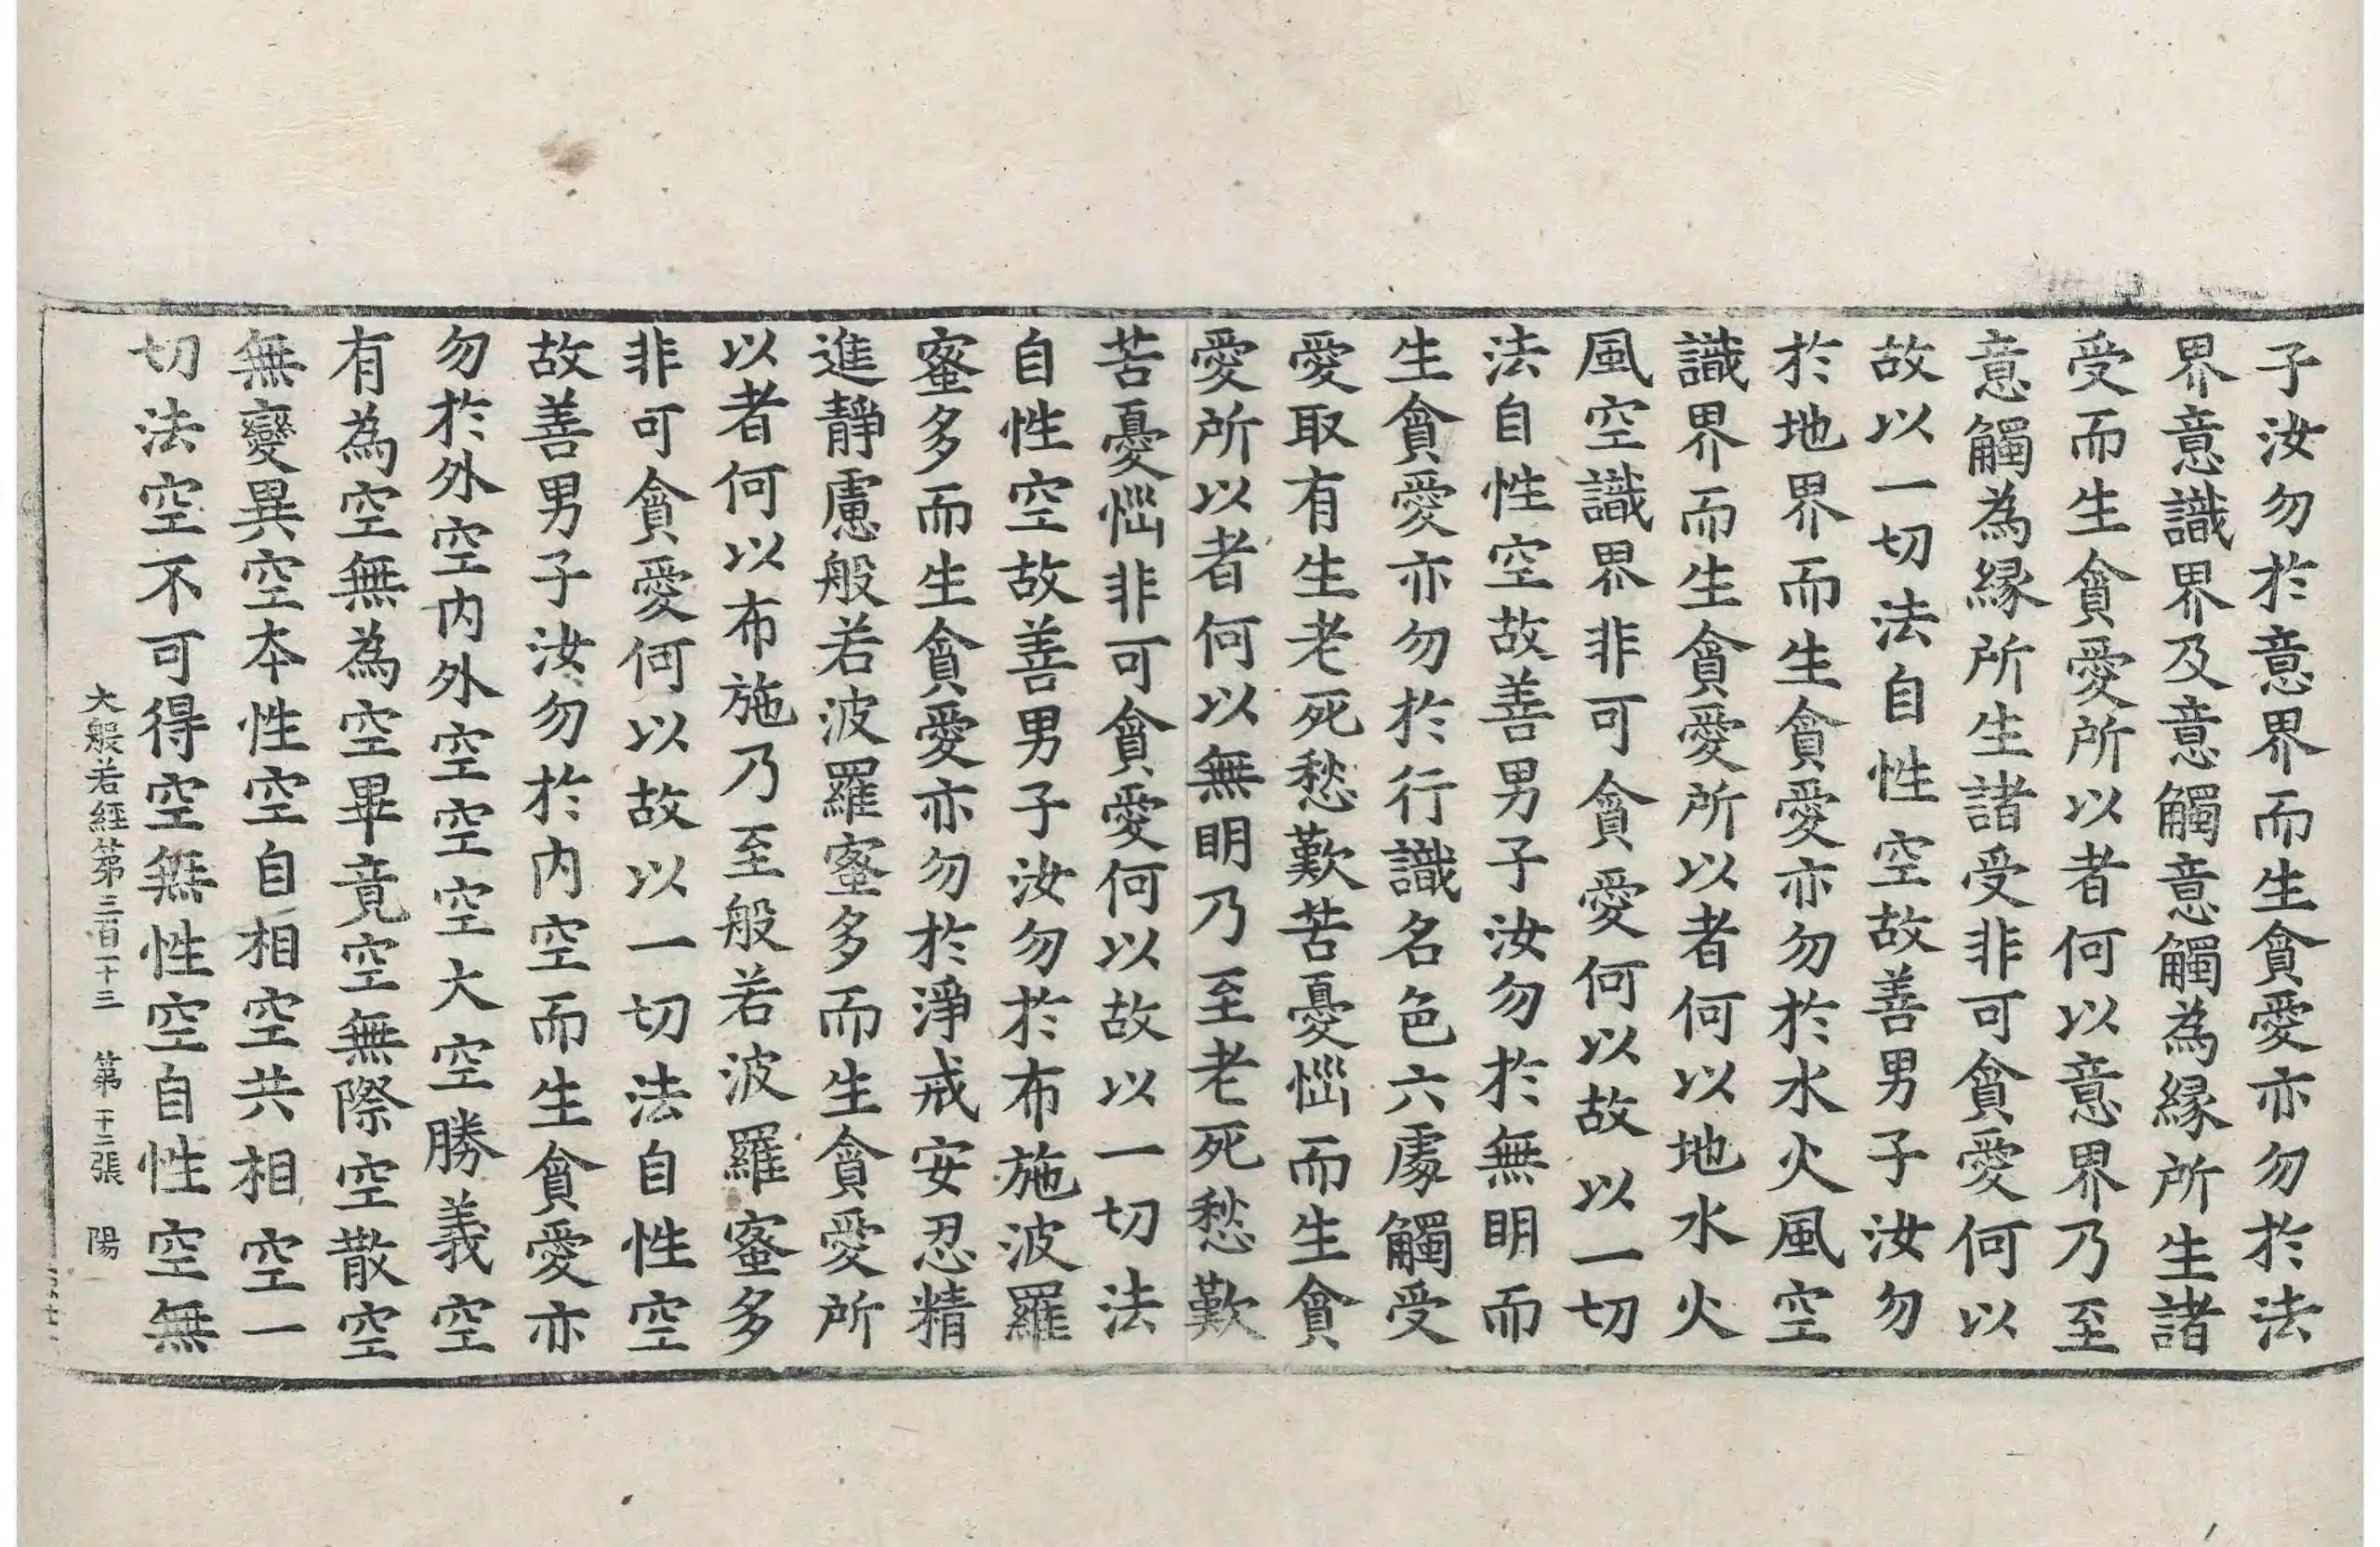 子汝勿於意界而生貪愛亦勿於法
界意識界及意觸意觸為縁所生諸
受而生貪愛所以者何以意界乃至
意觸為縁所生諸受非可貪愛何以
故以一切法自性空故善男子汝勿
於地界而生貪愛亦勿於水火風空
識界而生貪愛所以者何以地水火
風空識界非可貪愛何以故以一切
法自性空故善男子汝勿於無明而
生貪愛亦勿於行識名色六處觸受
愛取有生老死愁歎苦憂惱而生貪
愛所以者何以無明乃至老死愁歎
苦憂惱非可貪愛何以故以一切法
自性空故善男子汝勿於布施波羅
蜜多而生貪愛亦勿於淨戒安忍精
進靜慮般若波羅蜜多而生貪愛所
以者何以布施乃至般若波羅蜜多
非可貪愛何以故以一切法自性空
故善男子汝勿於内空而生貪愛亦
勿於外空内外空空空大空勝義空
有為空無為空畢竟空無際空散空
無變異空本性空自相空共相空一
切法空不可得空無性空自性空無
大般若經第三百一十三 第十二張 陽